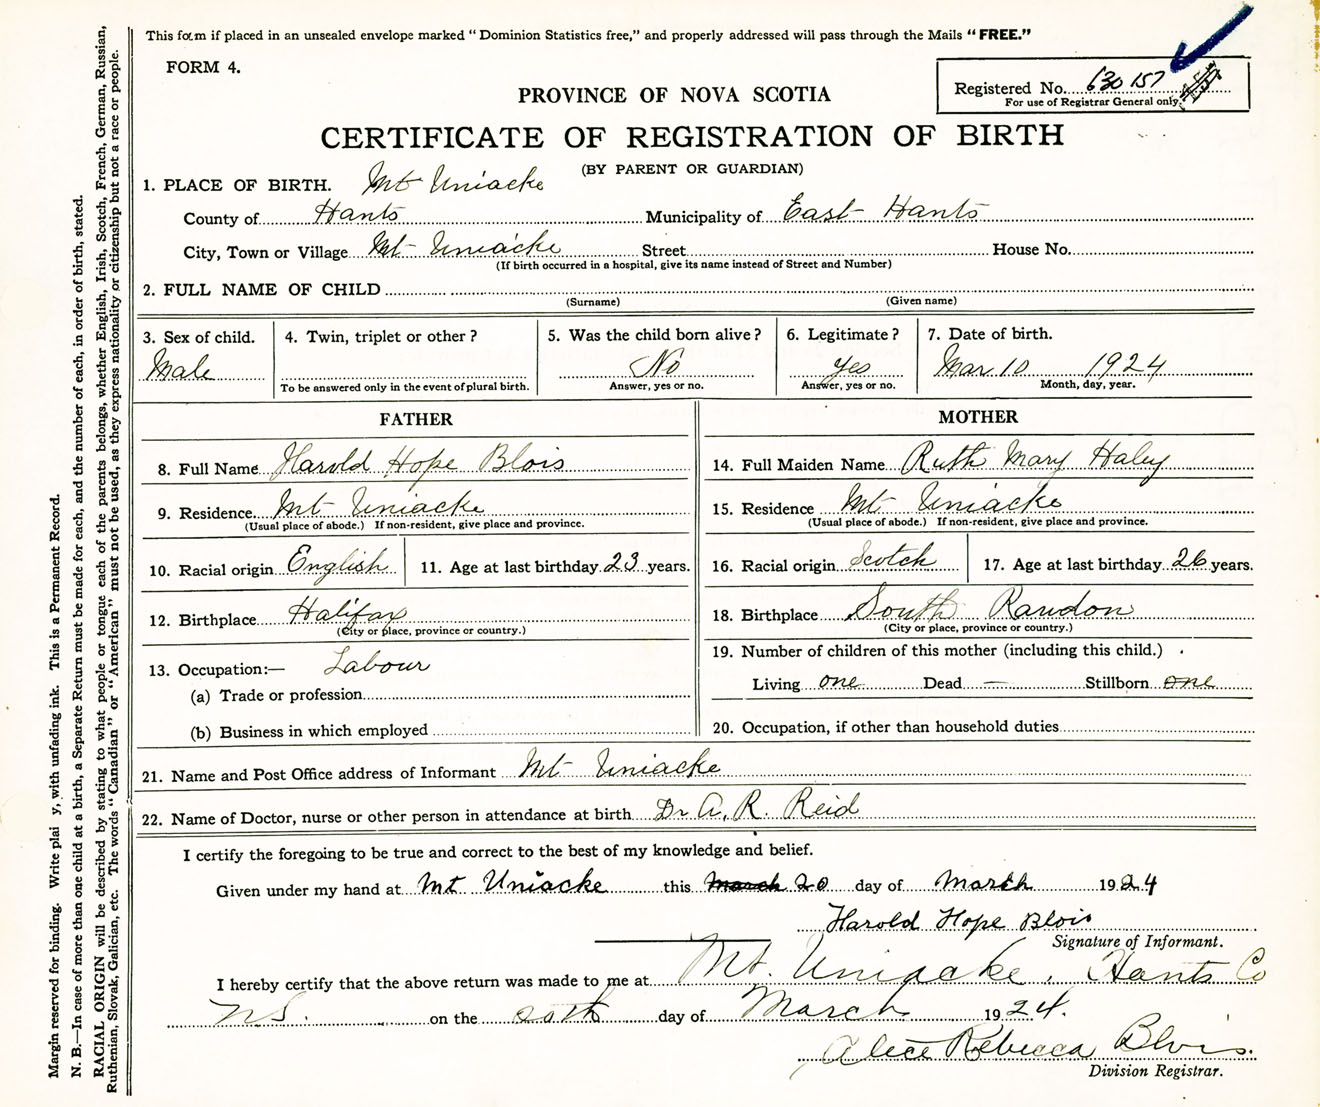 This form if placed in an unsealed envelope marked "Dominion Statistics free," and properly addressed will pass through the Mails "FREE."
FORM 4.
Registered No. 630157
For use of Registrar General only.
PROVINCE OF NOVA SCOTIA
CERTIFICATE OF REGISTRATION OF BIRTH
(BY PARENT OR GUARDIAN)
1. PLACE OF BIRTH. Mt Uniacke
County of Hants Municipality of East Hants
City, Town or Village Mt Uniacke Street House No.
(If birth occurred in a hospital, give its name instead of Street and Number)
2. FULL NAME OF CHILD
(Surname) (Given name)
3. Sex of child. 4. Twin, triplet or other? 5. Was the child born alive? 6. Legitimate? 7. Date of birth.
Male No Yes Mar 10 1924
To be answered only in the event of plural birth. Answer, yes or no. Answer, yes or no. Month, day, year.
FATHER
8. Full Name Harold Hope Blois
9. Residence Mt Uniacke
(Usual place of abode.) If non-resident, give place and province.
10. Racial origin English 11. Age at last birthday 23 years.
12. Birthplace Halifax
(City or place, province or country.)
13. Occupation:— Labour
(a) Trade or profession
(b) Business in which employed
MOTHER
14. Full Maiden Name Ruth Mary Haley
15. Residence Mt Uniacke
(Usual place of abode.) If non-resident, give place and province.
16. Racial origin Scotch 17. Age at last birthday 26 years.
18. Birthplace South Rawdon
(City or place, province or country.)
19. Number of children of this mother (including this child.)
Living one Dead — Stillborn one
20. Occupation, if other than household duties
21. Name and Post Office address of Informant Mt Uniacke
22. Name of Doctor, nurse or other person in attendance at birth Dr A. R. Reid
I certify the foregoing to be true and correct to the best of my knowledge and belief.
Given under my hand at Mt Uniacke this March 20 day of March 1924
Harold Hope Blois
Signature of Informant.
I hereby certify that the above return was made to me at Mt. Uniacke, Hants Co
N.S. on the 20th day of March 1924.
Alice Rebecca Blois.
Division Registrar.
Margin reserved for binding. Write plai y, with unfading ink. This is a Permanent Record.
N. B.—In case of more than one child at a birth, a Separate Return must be made for each, and the number of each, in order of birth, stated.
RACIAL ORIGIN will be described by stating to what people or tongue each of the parents belongs, whether English, Irish, Scotch, French, German, Russian,
Ruthenian, Slovak, Galician, etc. The words "Canadian" or "American" must not be used, as they express nationality or citizenship but not a race or people.